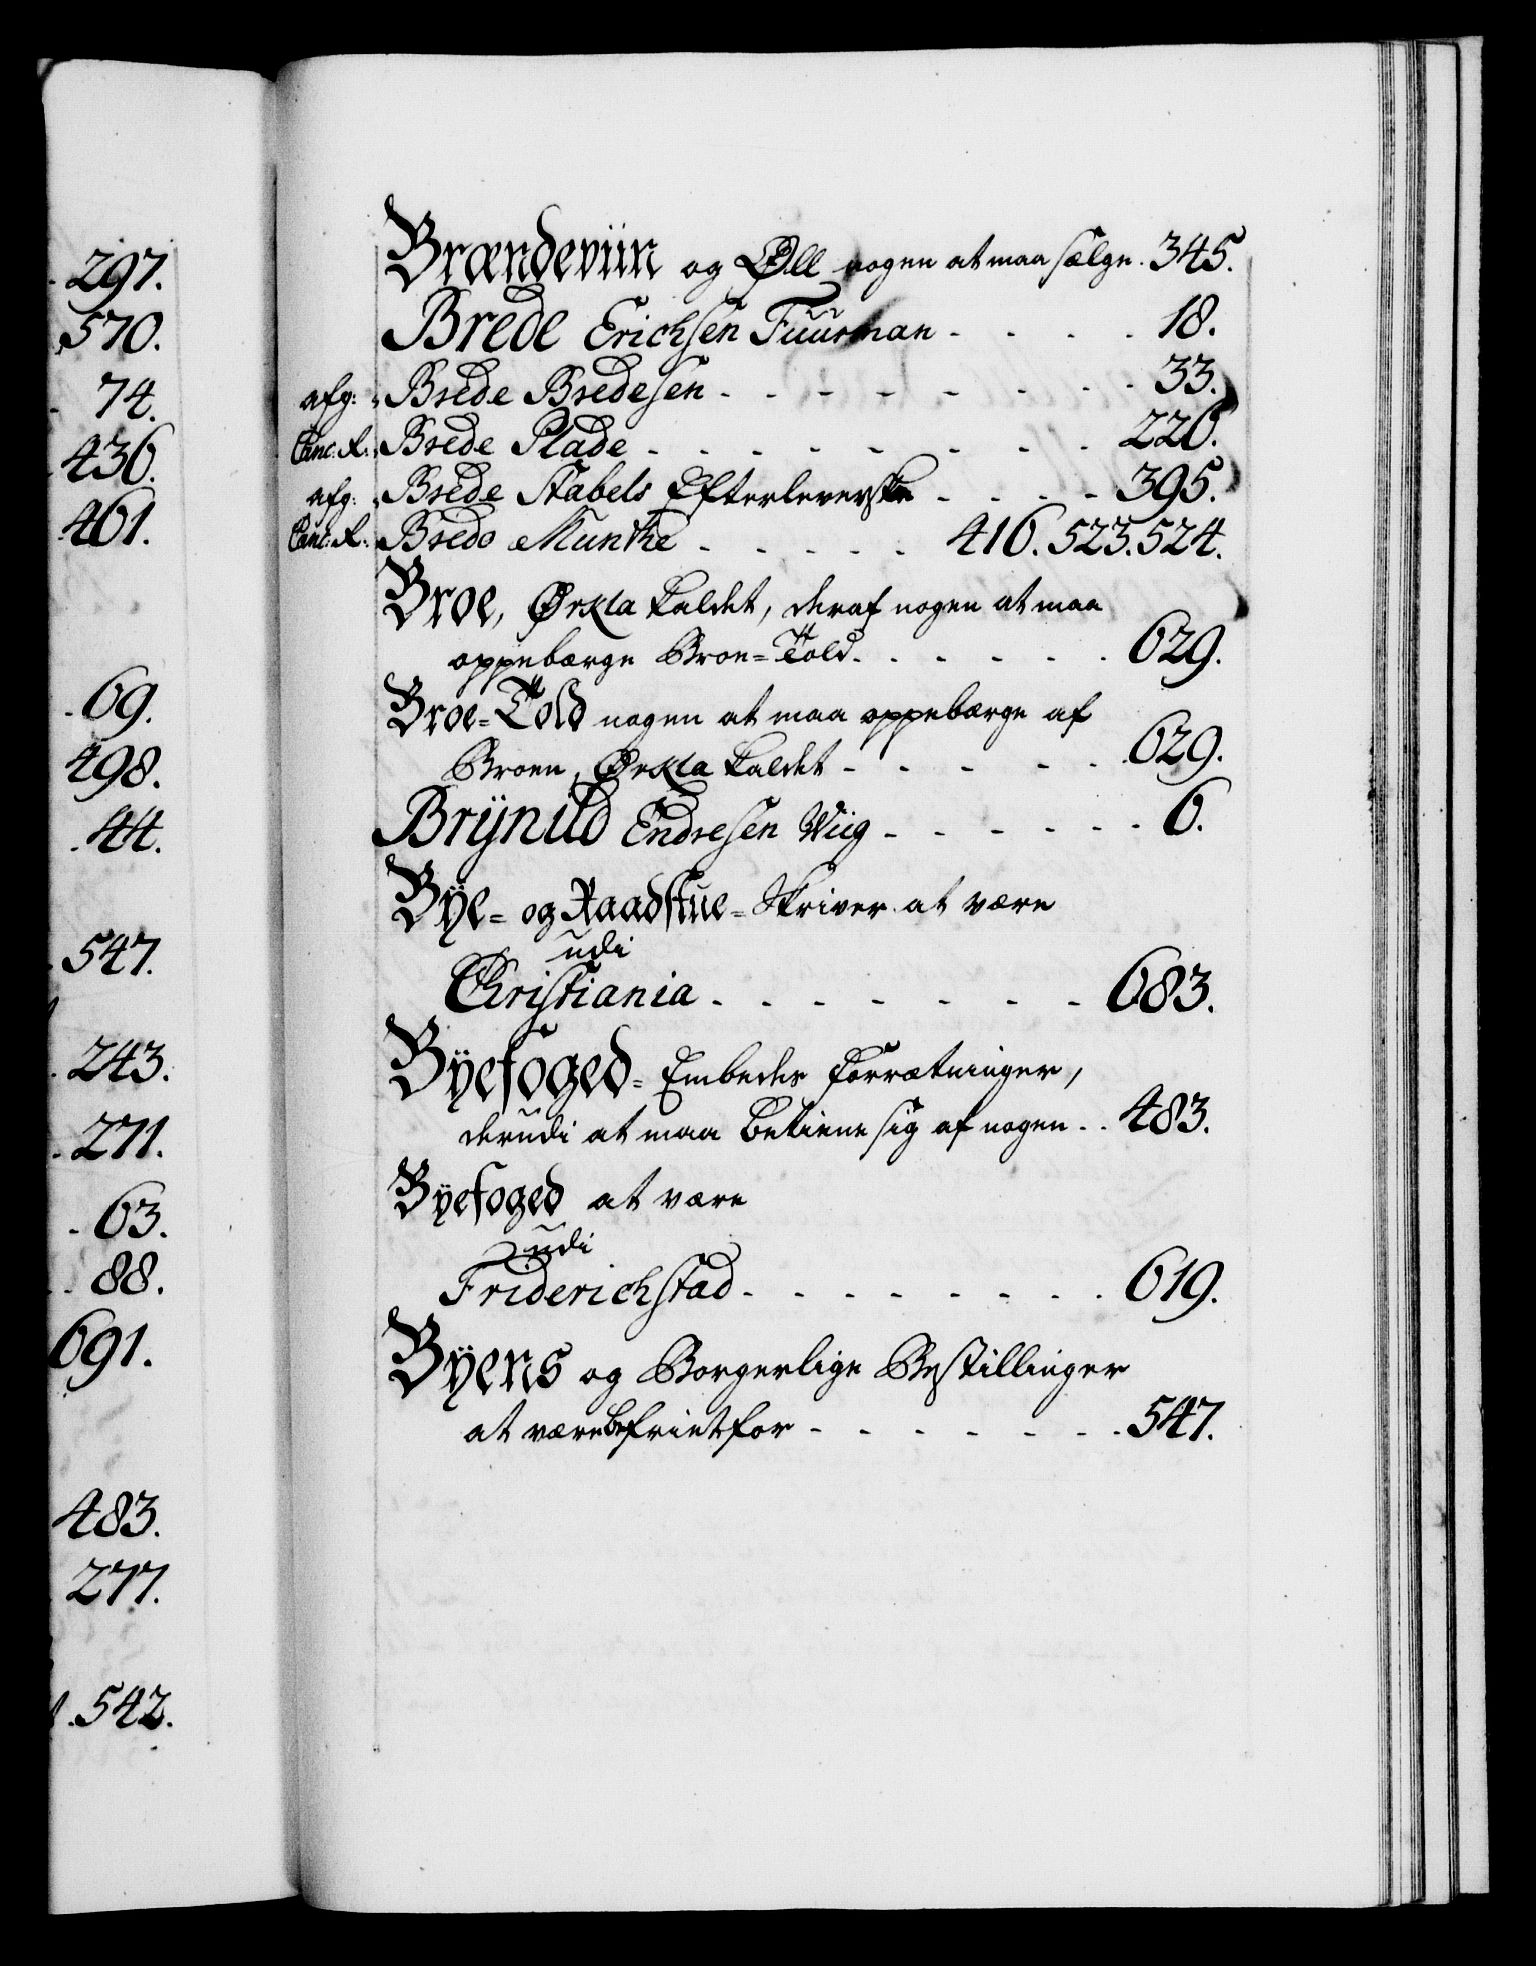 297.
570.
74.
436.
461.
69.
498.
44.
547.
243.
271.
63.
88.
691.
483.
277.
542.
Brændeviin og Øll nogen at maa sælge. 345.
Brede Erichsen Fuurman - - - - 18.
afg: Brede Bredesen - - - - - - - - 33.
Canc: R: Brede Plade - - - - - - - - - 226.
afg: Brede Stabels Efterleverske - - - - 395.
Canc: R: Bredo Munthe - - - - - 416. 523. 524.
Broe, Ørkla kaldet, deraf nogen at maa
oppebærge Broe=Told - - - - - - 629.
Broe=Told nogen at maa oppebærge af
Broen, Ørkla kaldet - - - - - - 629.
Brÿnild Endresen Wiig - - - - - - 6.
Bÿe= og Raadstue=Skriver at være
udi
Christiania - - - - - - - 683.
Bÿefoged=Embedes Forrætninger,
derudi at maa betiene sig af nogen - - 483.
Bÿefoged at være
udi
Friderichstad - - - - - - - - - 619.
Bÿens og Borgerlige Bestillinger
at være befriet for - - - - - - - 547.